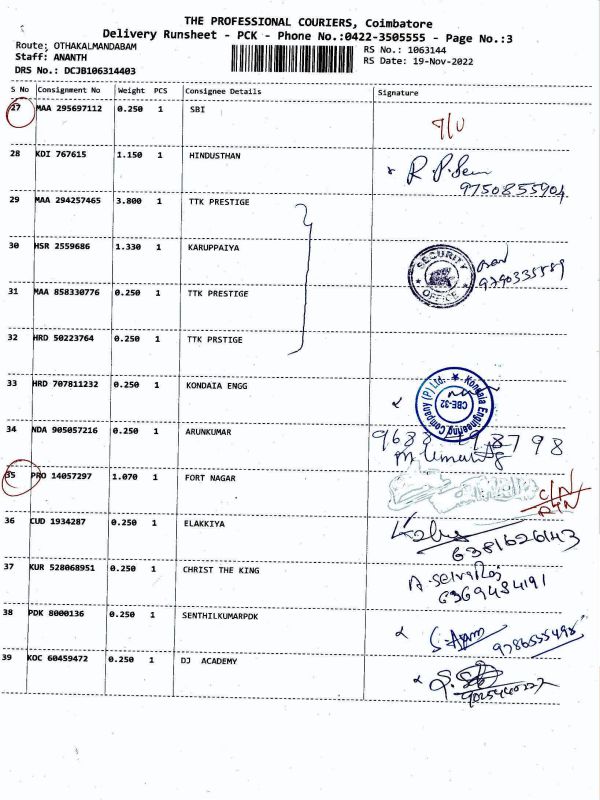 THE PROFESSIONAL COURIERS, Coimbatore
Delivery Runsheet - PCK - Phone No.:0422-3505555 - Page No.:3
Route; OTHAKALMANDABAM
RS No.: 1063144
Staff: ANANTH
RS Date: 19-Nov-2022
DRS No.: DCJB106314403
S No Consignment No Weight PCS Consignee Details Signature
27 MAA 295697112 0.250 1 SBI
28 KDI 767615 1.150 1 HINDUSTHAN
9750855904
29 MAA 294257465 3.800 1 TTK PRESTIGE
30 HSR 2559686 1.330 1 KARUPPAIYA
SECURITY OFFICE
31 MAA 858330776 0.250 1 TTK PRESTIGE
32 HRD 50223764 0.250 1 TTK PRSTIGE
33 HRD 707811232 0.250 1 KONDAIA ENGG
Kondaia Engineering Company (P) Ltd.
CBE-32
34 NDA 905057216 0.250 1 ARUNKUMAR
35 PRO 14057297 1.070 1 FORT NAGAR
36 CUD 1934287 0.250 1 ELAKKIYA
6381626143
37 KUR 528068951 0.250 1 CHRIST THE KING
A. Selva Raj
6369434191
38 PDK 8000136 0.250 1 SENTHILKUMARPDK
39 KOC 60459472 0.250 1 DJ ACADEMY